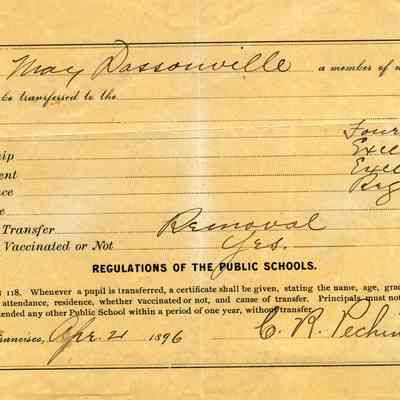 May Dassonville a member of
be transferred to the
Four
hip Exce
ent Exce
nce Reg
e
Transfer Removal
Vaccinated or Not Yes.
REGULATIONS OF THE PUBLIC SCHOOLS.
118. Whenever a pupil is transferred, a certificate shall be given, stating the name, age, grad
attendance, residence, whether vaccinated or not, and cause of transfer. Principals must not
ended any other Public School within a period of one year, without transfer.
Francisco, Apr. 21 1896 C. R. Pechin